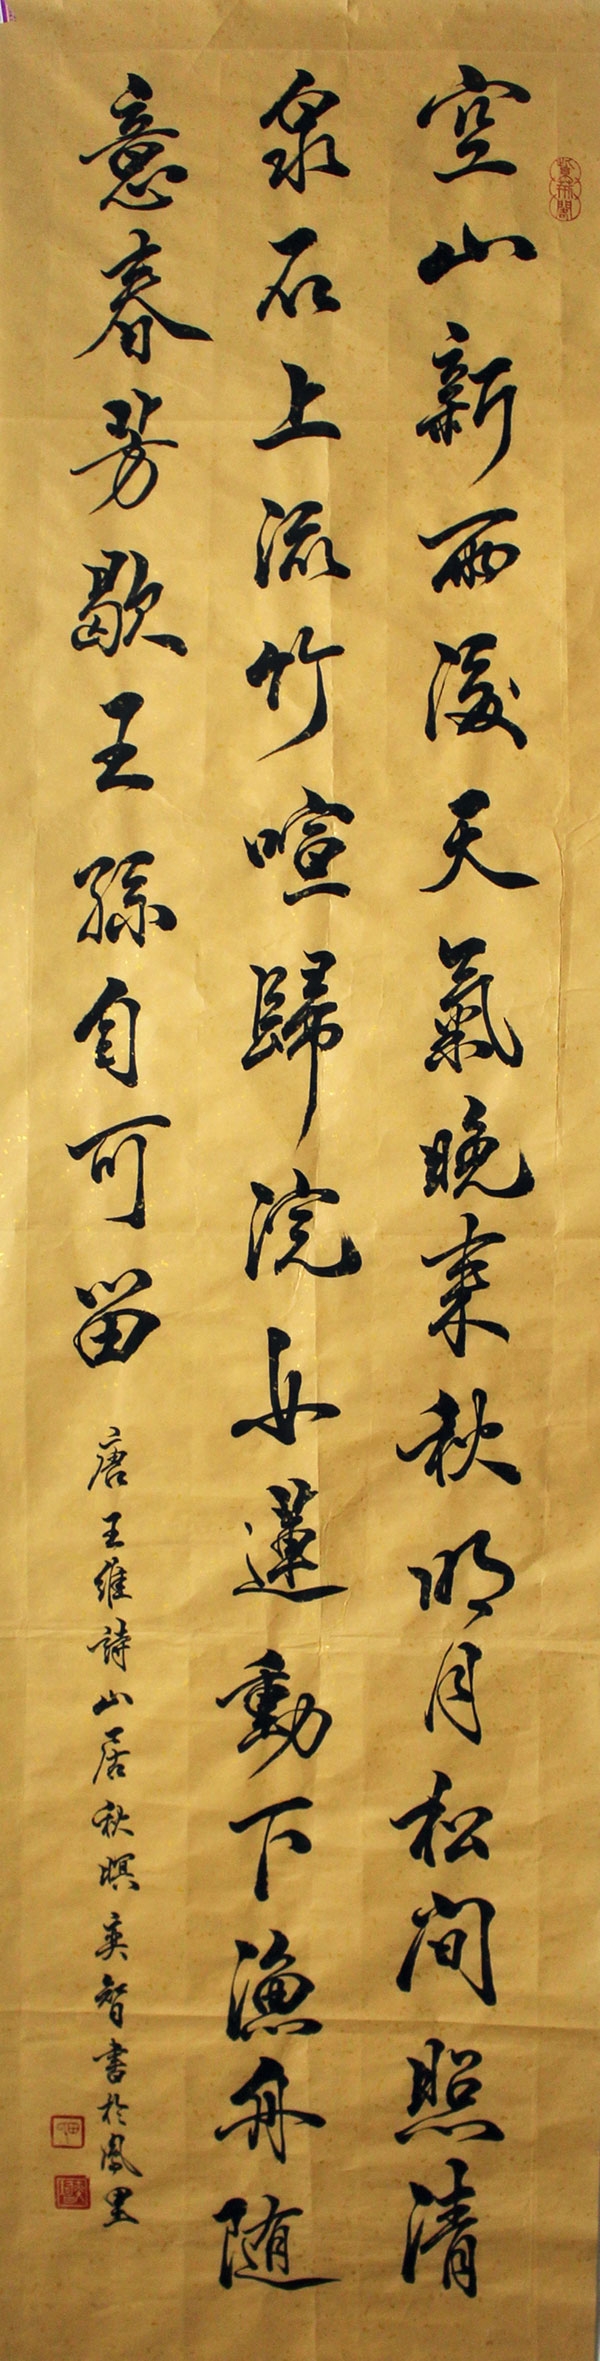 空山新雨後天氣晚來秋明月松間照清
泉石上流竹喧歸浣女蓮動下漁舟随
意春芳歇王孫自可留
唐王維詩山居秋暝奕智書於鳳里